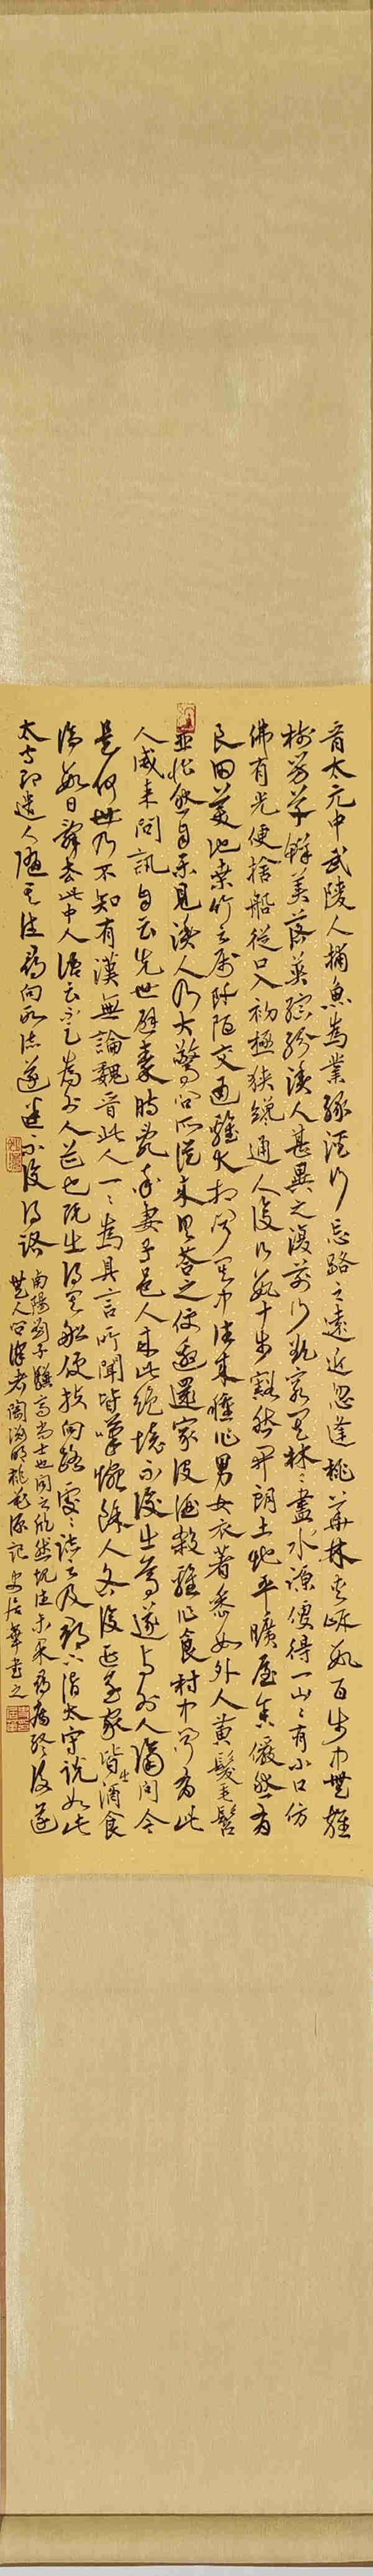 晉太元中武陵人捕魚為業緣溪行忘路之遠近忽逢桃華林夾岸數百步中無雜
樹芳草鮮美落英繽紛漁人甚異之復前行欲窮其林林盡水源便得一山山有小口仿
佛有光便捨船從口入初極狹纔通人復行數十步豁然開朗土地平曠屋舍儼然有
良田美池桑竹之屬阡陌交通雞犬相聞其中往來種作男女衣著悉如外人黃髮垂髫
並怡然自樂見漁人乃大驚問所從來具答之便邀還家設酒殺雞作食村中聞有此
人咸來問訊自云先世避秦時亂率妻子邑人來此絕境不復出焉遂與外人隔問今
是何世乃不知有漢無論魏晉此人一一為具言所聞皆嘆惋餘人各復延至其家皆出酒食
停數日辭去此中人語云不足為外人道也既出得其船便扶向路處處誌之及郡下詣太守說如此
太守即遣人隨其往尋向所誌遂迷不復得路
南陽劉子驥高尚士也聞之欣然規往未果尋病終後遂
無人問津者陶淵明桃花源記 史居華書之